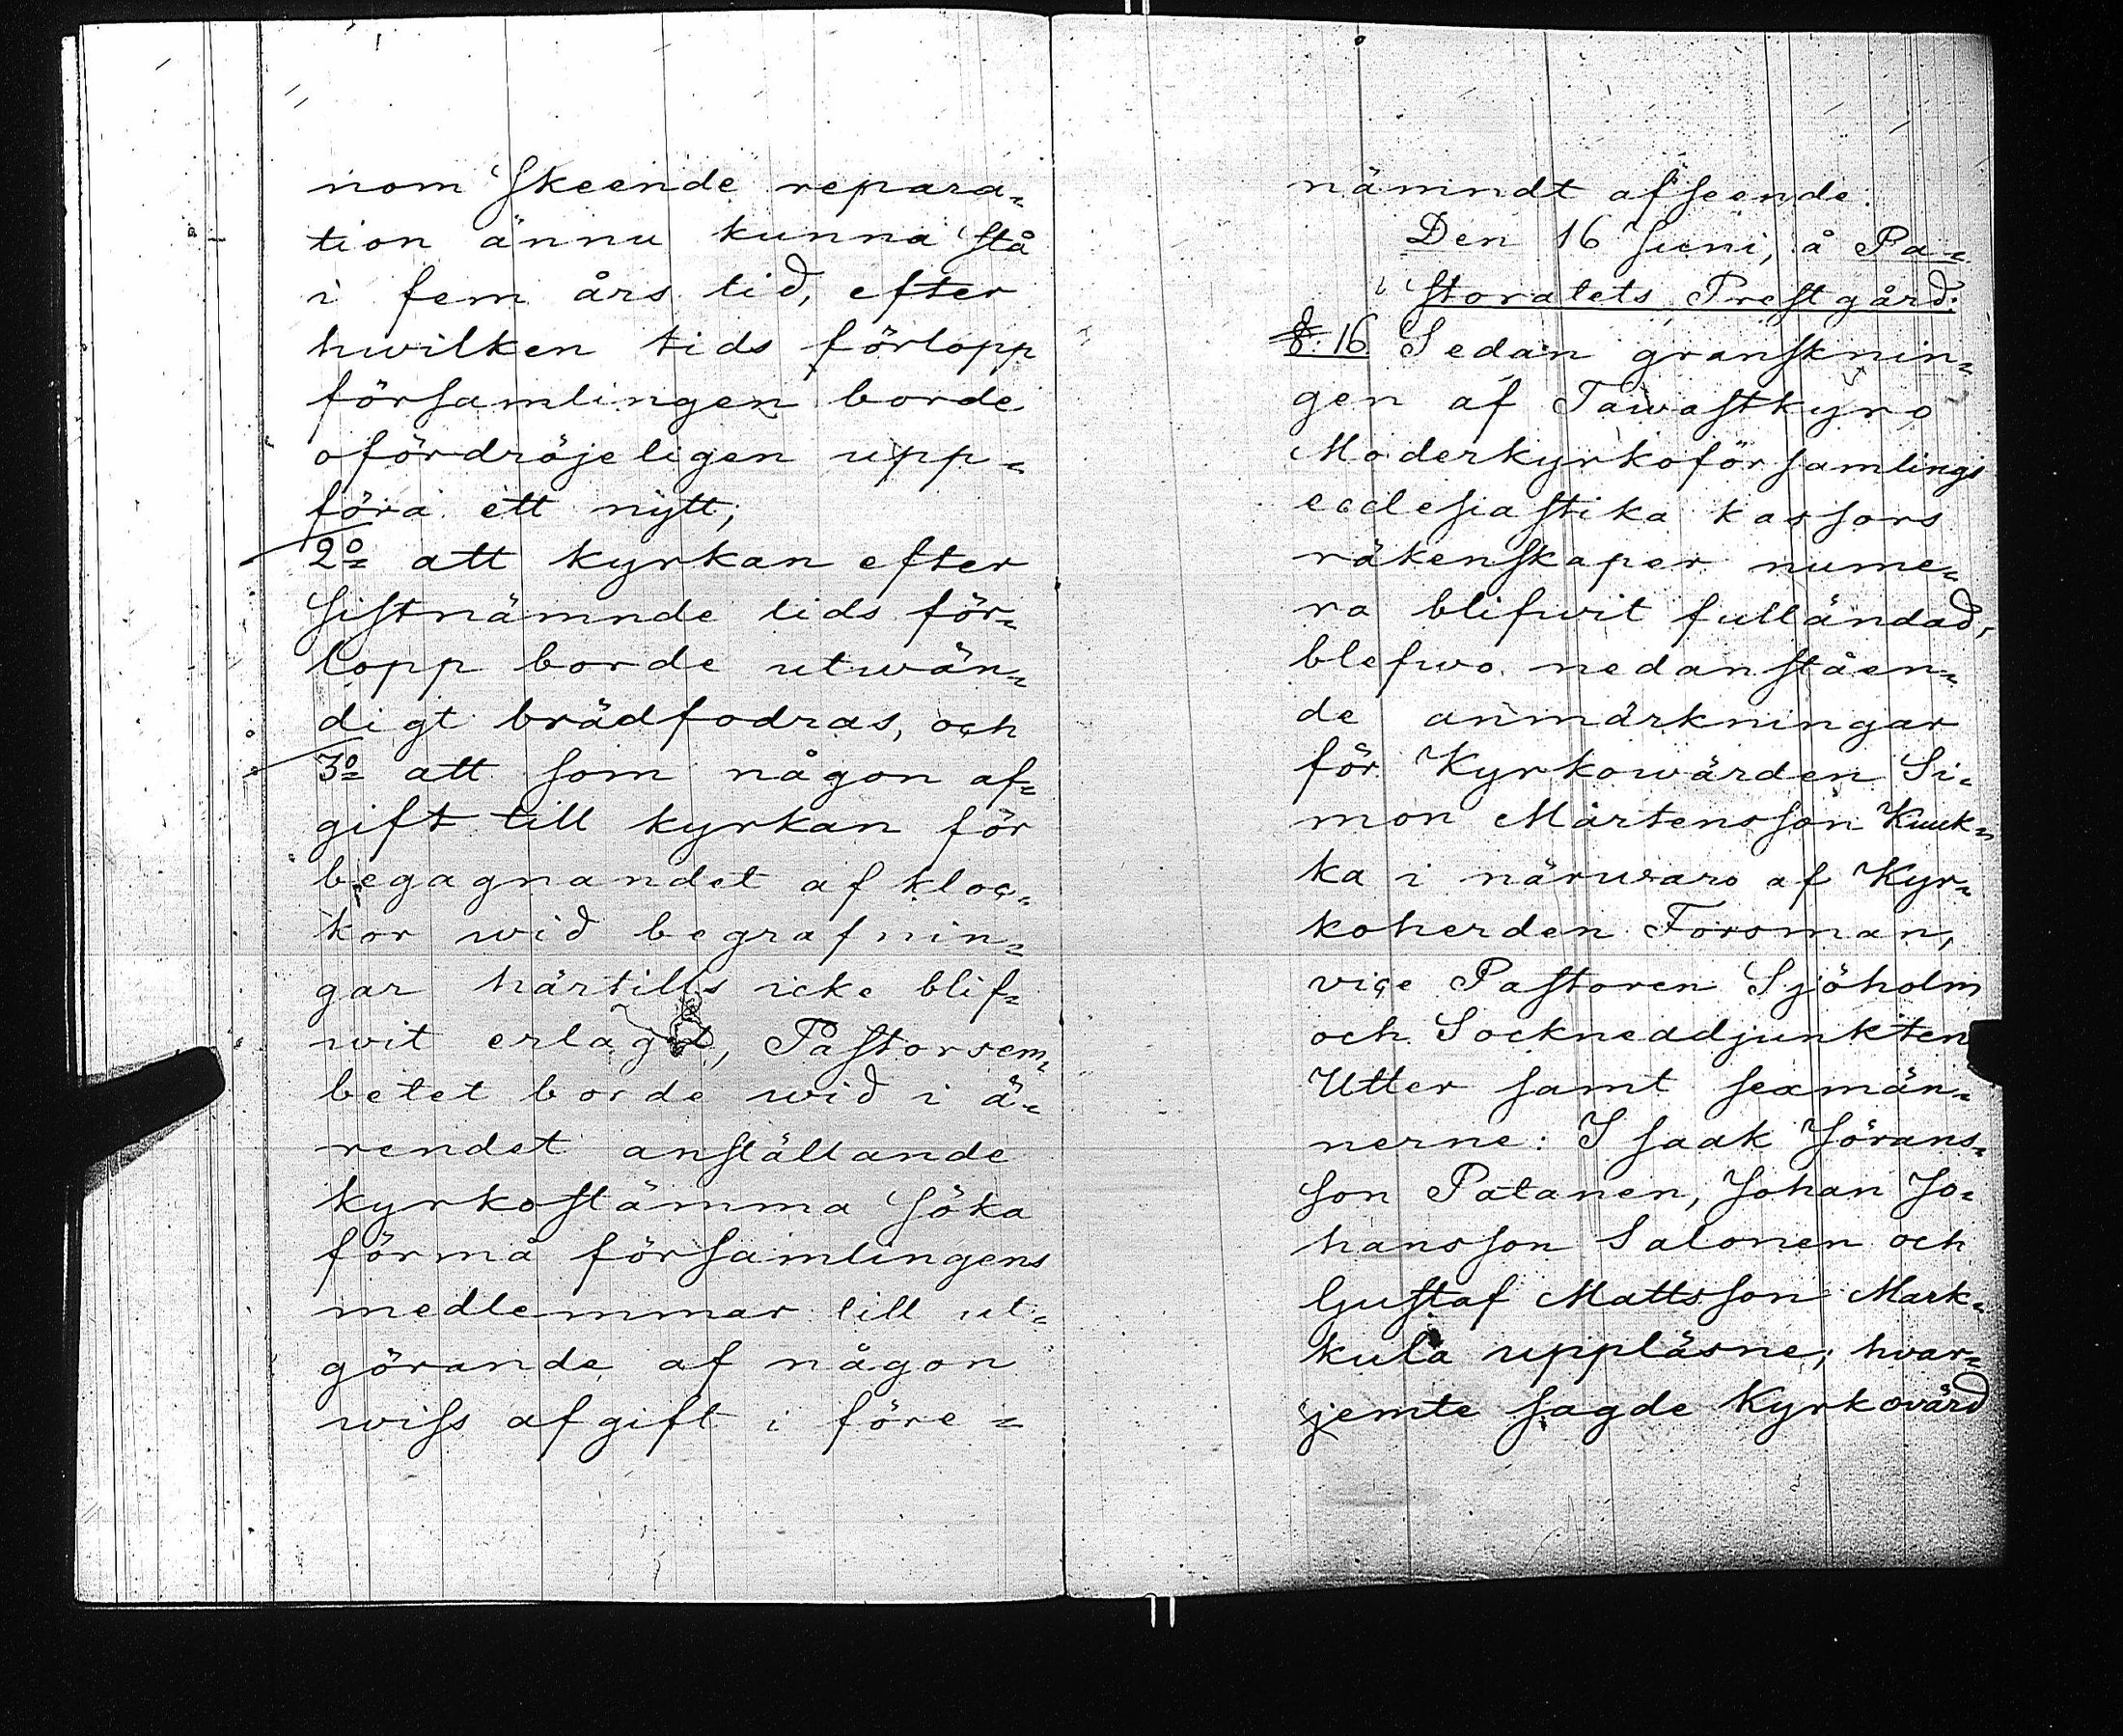 nom skeende repara-
tion ännu kunna stå
i fem års tid, efter
hwilken tids förlopp
församlingen borde
ofördröjeligen upp-
föra ett nytt;
2o att kyrkan efter
sistnämnde tids för-
lopp borde utwän-
digt brädfodras, och
3o att som någon af-
gift till kyrkan för
begagnandet af kloc-
kor wid begrafnin-
gar härtills icke blif-
wit erlagd, Pastorsem-
betet borde wid i ä-
rendet anställande
kyrkostämma söka
förmå församlingens
medlemmar till ut-
görande af någon
wiss afgift i före-
nämndt afseende.
Den 16 Juni, å Pa-
storatets Prestgård.
§. 16. Sedan gransknin-
gen af Tawastkyro
Moderkyrkoförsamlings
ecclesiastika kassors
räkenskaper nume-
ra blifwit fulländad,
blefwo nedanståen-
de anmärkningar
för Kyrkowärden Si-
mon Mårtensson Kuuk-
ka i närwaro af Kyr-
koherden Forsman,
vice Pastoren Sjöholm
och Sockneadjunkten
Utter samt sexmän-
nerne: Isaak Jörans-
son Patanen, Johan Jo-
hansson Salonen och
Gustaf Mattsson Mark-
kula uppläsne; hvar-
jemte sagde Kyrkovärd